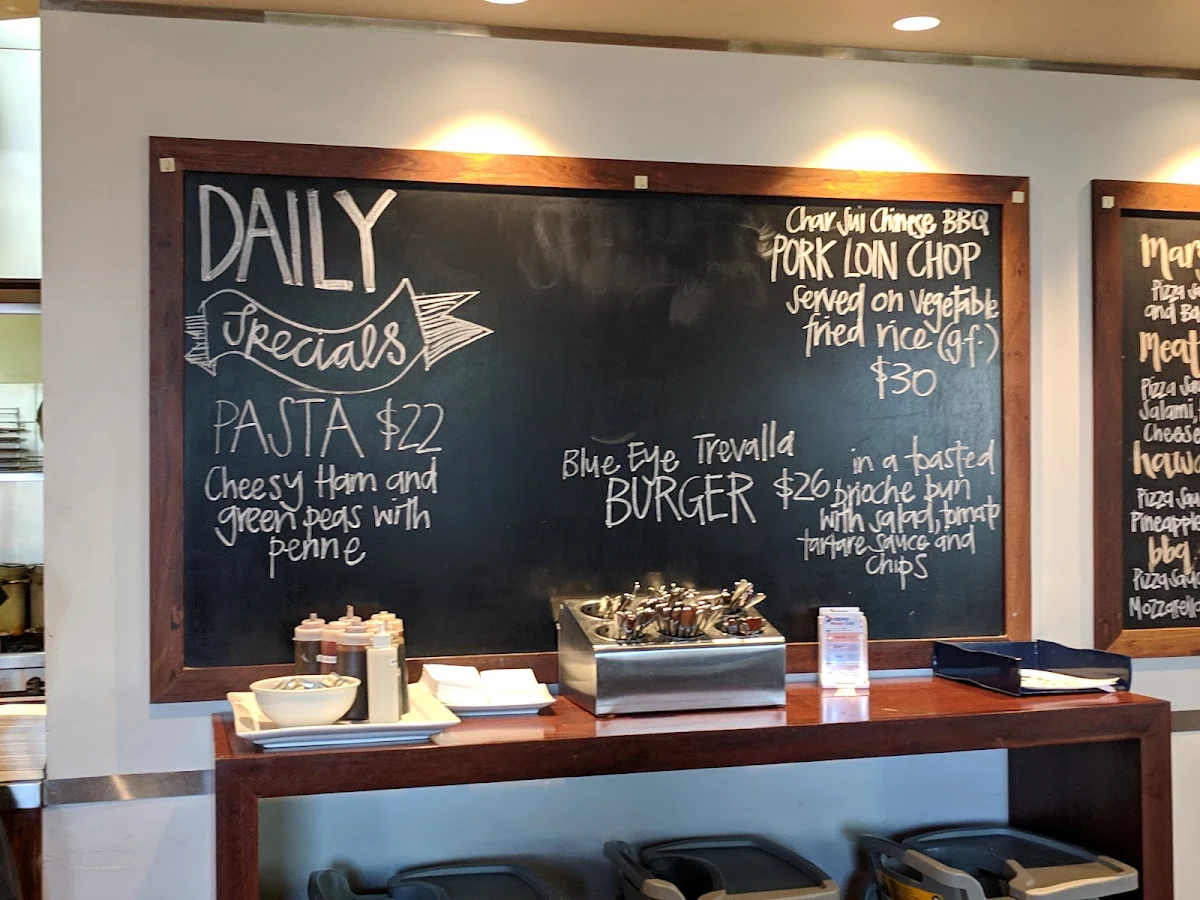 DAILY
Specials
PASTA $22
Cheesy Ham and
green peas with
penne
Char Sui Chinese BBQ
PORK LOIN CHOP
served on vegetable
fried rice (g.f.)
$30
Blue Eye Trevalla
BURGER $26
in a toasted
brioche bun
with salad, tomato
tartare sauce and
chips
Mar
Pizza Sa
and Ba
Meat
Pizza Sau
Salami,
Cheese
hawa
Pizza Sau
Pineapple
bbq
Pizza Sauc
Mozzarella